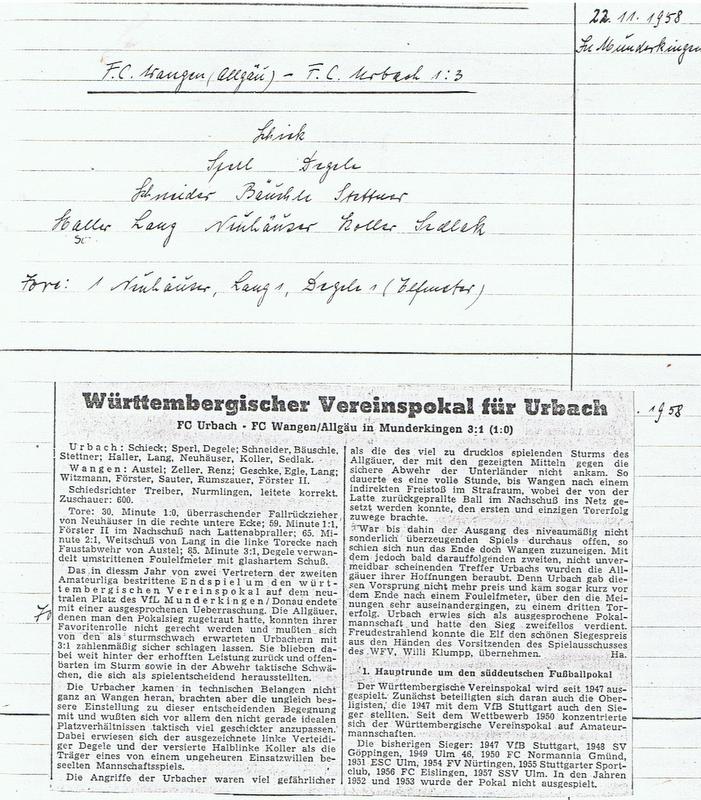 22.11.1958
In Munderkingen
F.C. Wangen (Allgäu) – F.C. Urbach 1:3
Schieck
Sperl Degele
Schneider Bäuchle Stettner
Haller Lang Neuhäuser Koller Sedlak
Tore: 1 Neuhäuser, Lang 1, Degele 1 (Elfmeter)
. 1958
Württembergischer Vereinspokal für Urbach
FC Urbach - FC Wangen/Allgäu in Munderkingen 3:1 (1:0)
Urbach: Schieck; Sperl, Degele; Schneider, Bäuschle,
Stettner; Haller, Lang, Neuhäuser, Koller, Sedlak.
Wangen: Austel; Zeller, Renz; Geschke, Egle, Lang;
Witzmann, Förster, Sauter, Rumszauer, Förster II.
Schiedsrichter Treiber, Nurmlingen, leitete korrekt.
Zuschauer: 600.
Tore: 30. Minute 1:0, überraschender Fallrückzieher
von Neuhäuser in die rechte untere Ecke; 59. Minute 1:1,
Förster II im Nachschuß nach Lattenabpraller; 65. Mi-
nute 2:1, Weitschuß von Lang in die linke Torecke nach
Faustabwehr von Austel; 85. Minute 3:1, Degele verwan-
delt umstrittenen Foulelfmeter mit glashartem Schuß.
Das in diessm Jahr von zwei Vertretern der zweiten
Amateurliga bestrittene Endspiel um den würt-
tembergischen Vereinspokal auf dem neu-
tralen Platz des VfL Munderkingen/Donau endete
mit einer ausgesprochenen Ueberraschung. Die Allgäuer,
denen man den Pokalsieg zugetraut hatte, konnten ihrer
Favoritenrolle nicht gerecht werden und mußten sich
von den als sturmschwach erwarteten Urbachern mit
3:1 zahlenmäßig sicher schlagen lassen. Sie blieben da-
bei weit hinter der erhofften Leistung zurück und offen-
barten im Sturm sowie in der Abwehr taktische Schwä-
chen, die sich als spielentscheidend herausstellten.
Die Urbacher kamen in technischen Belangen nicht
ganz an Wangen heran, brachten aber die ungleich bes-
sere Einstellung zu dieser entscheidenden Begegnung
mit und wußten sich vor allem den nicht gerade idealen
Platzverhältnissen taktisch viel geschickter anzupassen.
Dabei erwiesen sich der ausgezeichnete linke Verteidi-
ger Degele und der versierte Halblinke Koller als die
Träger eines von einem ungeheuren Einsatzwillen be-
seelten Mannschaftsspiels.
Die Angriffe der Urbacher waren viel gefährlicher
als die des viel zu drucklos spielenden Sturms des
Allgäuer, der mit den gezeigten Mitteln gegen die
sichere Abwehr der Unterländer nicht ankam. So
dauerte es eine volle Stunde, bis Wangen nach einem
indirekten Freistoß im Strafraum, wobei der von der
Latte zurückgeprallte Ball im Nachschuß ins Netz ge-
setzt werden konnte, den ersten und einzigen Torerfolg
zuwege brachte.
War bis dahin der Ausgang des niveaumäßig nicht
sonderlich überzeugenden Spiels durchaus offen, so
schien sich nun das Ende doch Wangen zuzuneigen. Mit
dem jedoch bald darauffolgenden zweiten, nicht unver-
meidbar scheinenden Treffer Urbachs wurden die All-
gäuer ihrer Hoffnungen beraubt. Denn Urbach gab die-
sen Vorsprung nicht mehr preis und kam sogar kurz vor
dem Ende nach einem Foulelfmeter, über den die Mei-
nungen sehr auseinandergingen, zu einem dritten Tor-
erfolg. Urbach erwies sich als ausgesprochene Pokal-
mannschaft und hatte den Sieg zweifellos verdient.
Freudestrahlend konnte die Elf den schönen Siegespreis
aus den Händen des Vorsitzenden des Spielausschusses
des WFV, Willi Klumpp, übernehmen. Ha.
1. Hauptrunde um den süddeutschen Fußballpokal
Der Württembergische Vereinspokal wird seit 1947 aus-
gespielt. Zunächst beteiligten sich daran auch die Ober-
ligisten, die 1947 mit dem VfB Stuttgart auch den Sie-
ger stellten. Seit dem Wettbewerb 1950 konzentrierte
sich der Württembergische Vereinspokal auf Amateur-
mannschaften.
Die bisherigen Sieger: 1947 VfB Stuttgart, 1948 SV
Göppingen, 1949 Ulm 46, 1950 FC Normannia Gmünd,
1951 ESC Ulm, 1954 FV Nürtingen, 1955 Stuttgarter Sport-
club, 1956 FC Eislingen, 1957 SSV Ulm. In den Jahren
1952 und 1953 wurde der Pokal nicht ausgespielt.